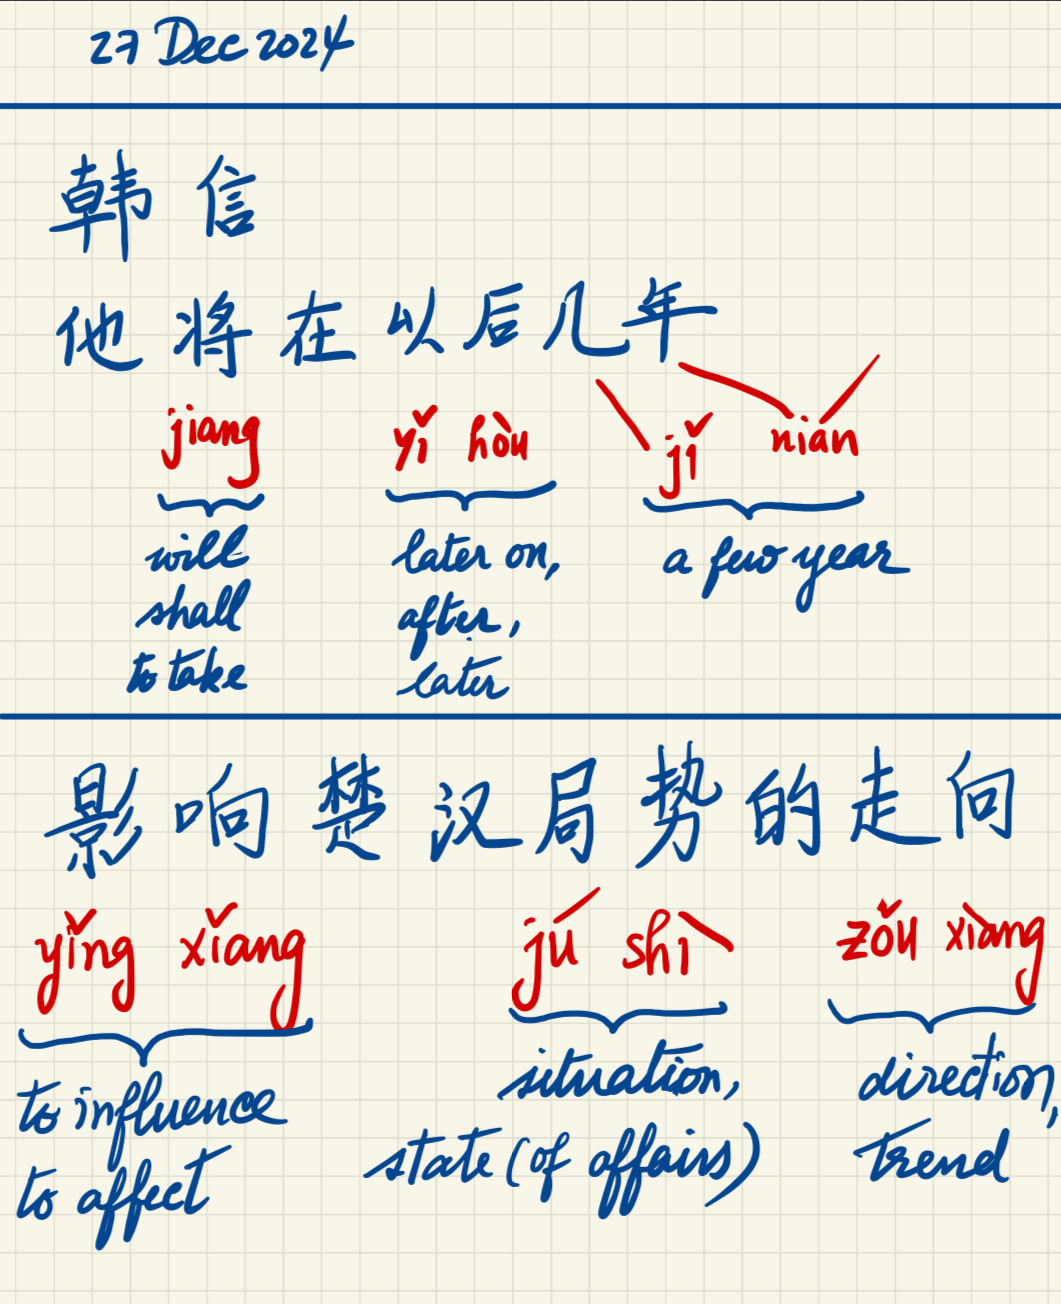 27 Dec 2024
韩信
他将在以后几年
jiang yǐ hòu jǐ nián
will later on, a few year
shall after,
to take later
影响楚汉局势的走向
yǐng xiǎng jú shì zǒu xiàng
to influence situation, direction,
to affect state (of affairs) trend